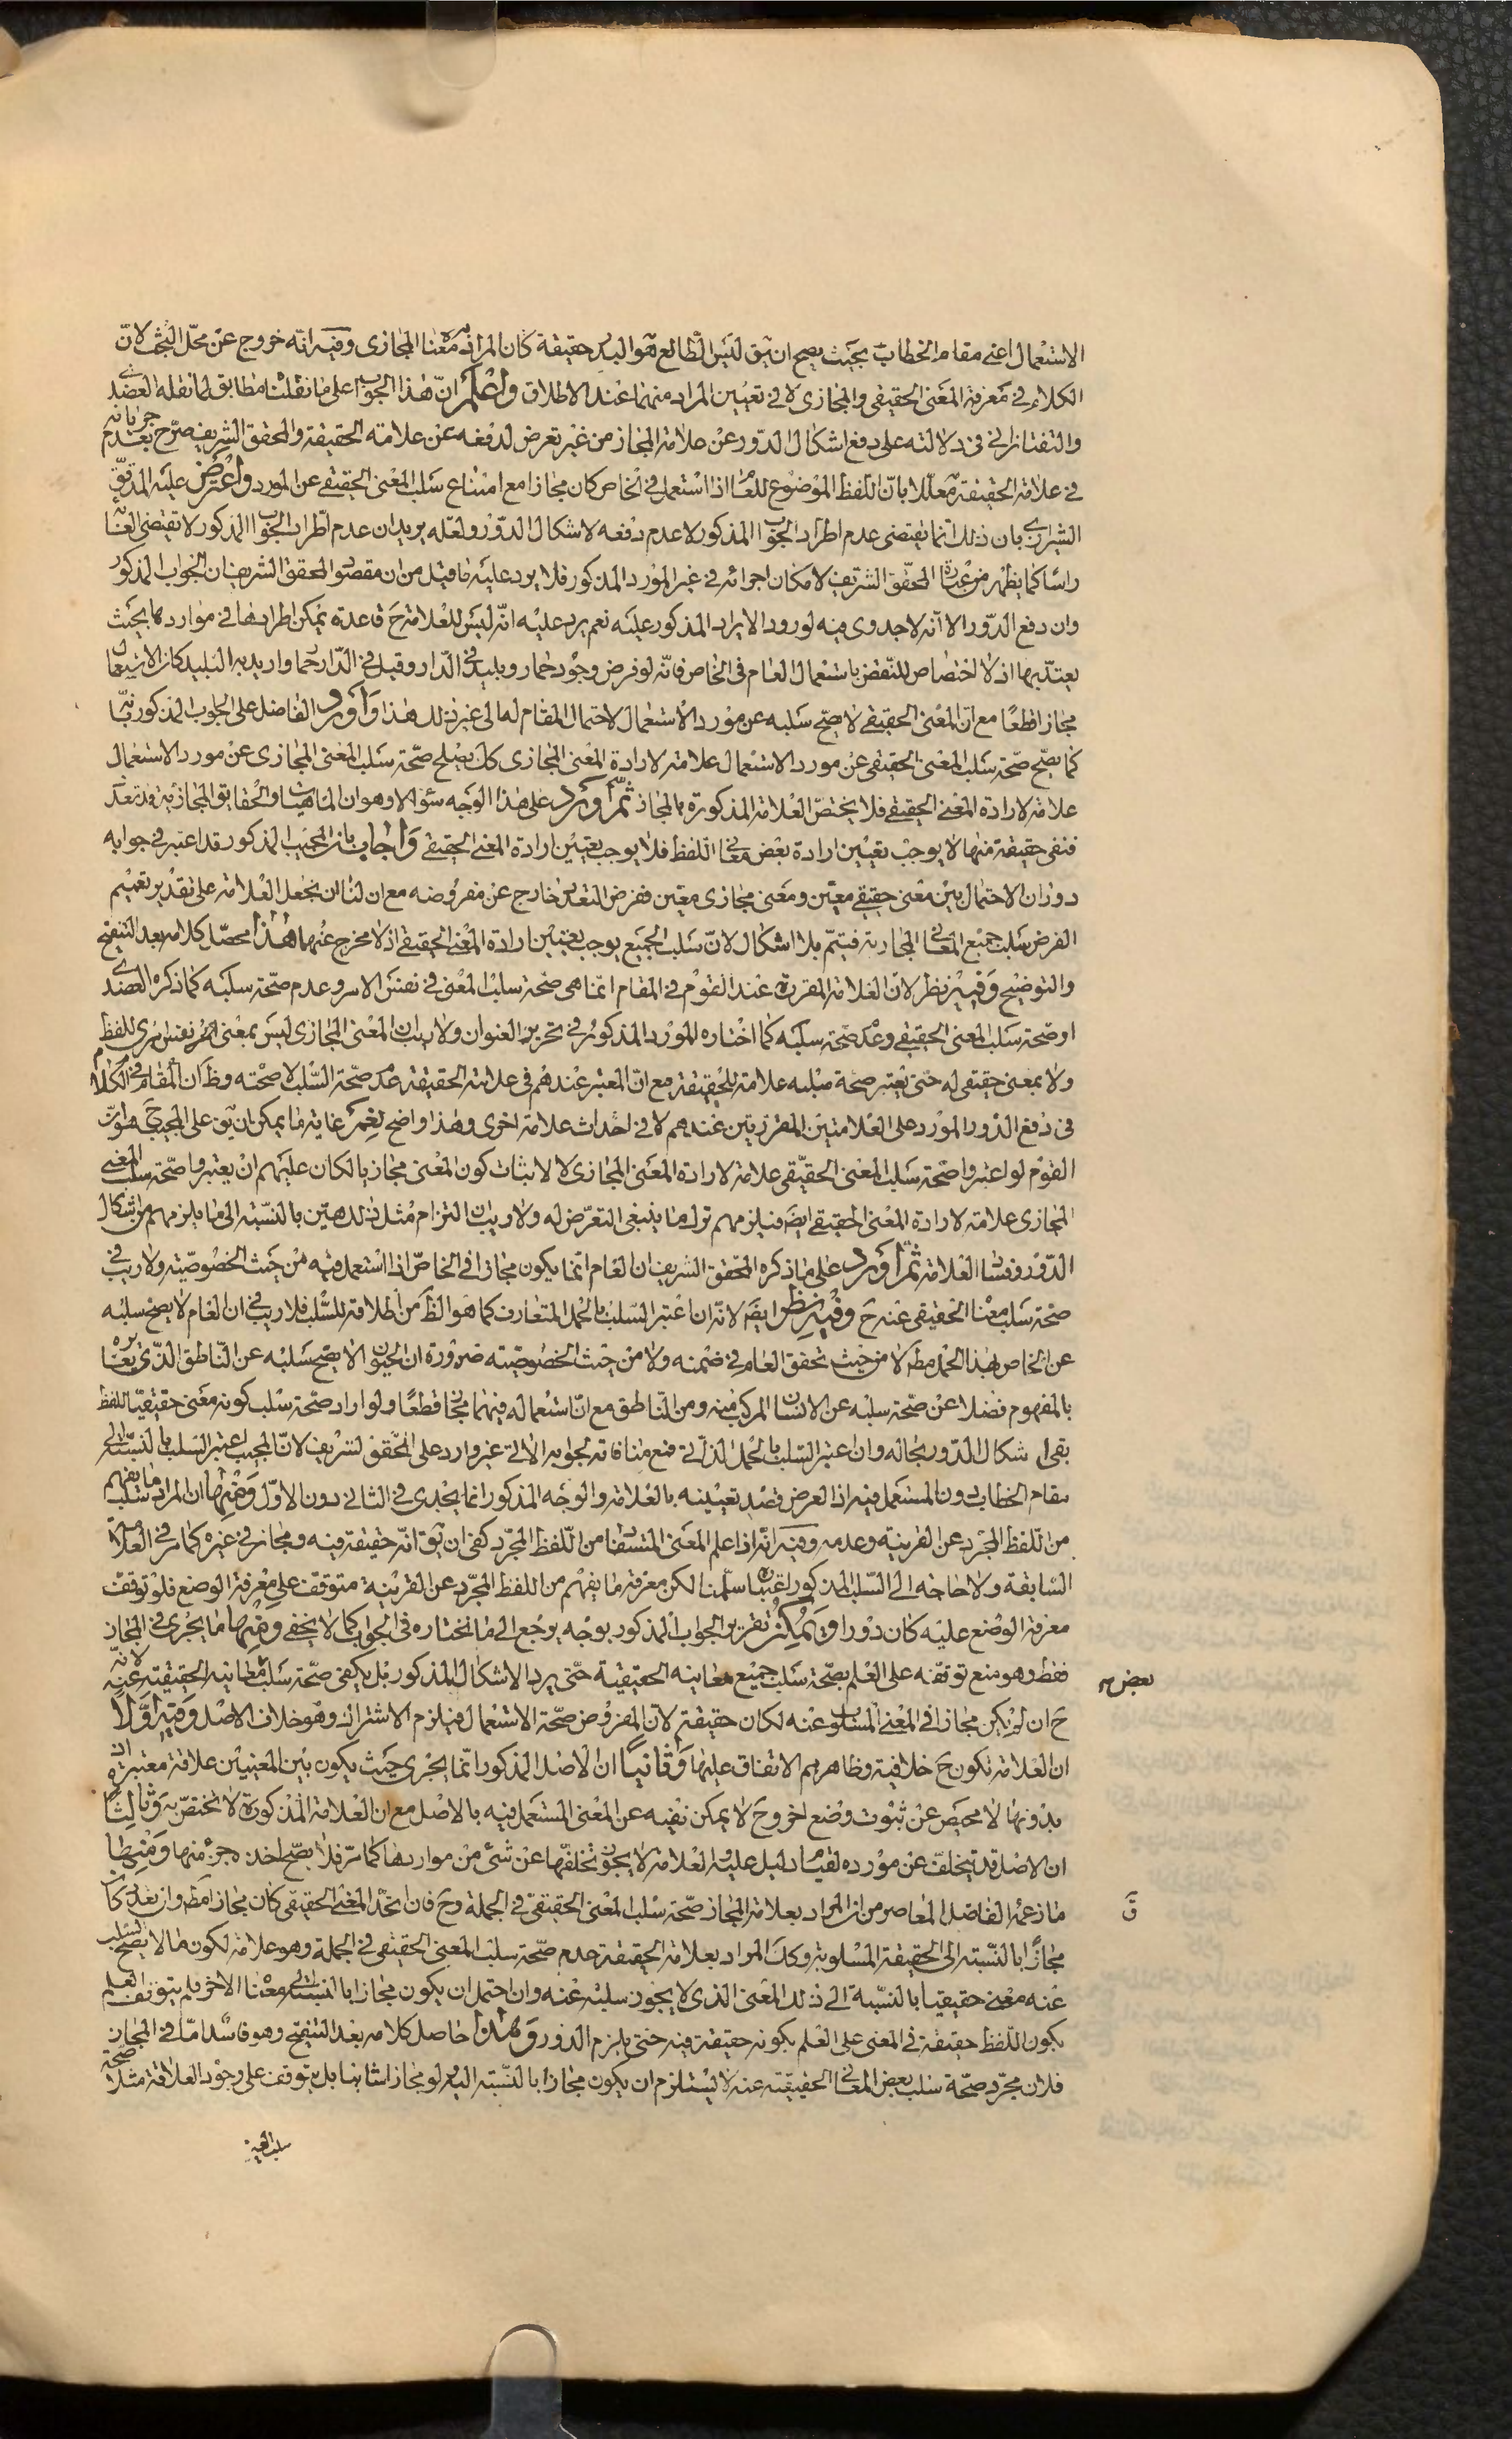 الاستعمال اعنى مقام الخطاب بحيث يصح ان يق ليس الطالع هو البدر حقيقة كان المراد معناه المجازى وفيه انه خروج عن محل البحث لان
الكلام فى معرفة المعنى الحقيقى والمجازى لا فى تعيين المراد منهما عند الاطلاق واعلم ان هذا الجواب على ما نقلنا مطابق لما نقله العضدى
والتفتازانى فى دلالته على دفع اشكال الدور عن علامة المجاز من غير تعرض لدفعه عن علامة الحقيقة والمحقق الشريف صرح بعدم جريانه
فى علامة الحقيقة معللا بان اللفظ الموضوع للعام اذا استعمل فى الخاص كان مجازا مع امتناع سلب المعنى الحقيقى عن المورد واعترض عليه المدقق
الشيرازى بان ذلك انما يقتضى عدم اطراد الجواب المذكور لا عدم دفعه لاشكال الدور ولعله يريد ان عدم اطراد الجواب المذكور لا تقتضى الغائه
راسا كما يظهر من عبارة المحقق الشريف لامكان اجرائه فى غير المورد المذكور فلا يرد عليه ما قيل من ان مقصود المحقق الشريف ان الجواب المذكور
وان دفع الدور الا انه لا جدوى فيه لورود الايراد المذكور عليه نعم يرد عليه انه ليس للعلامة ح قاعدة يمكن اطرادها فى مواردها بحيث
يعتد بها اذ لا اختصاص للنقض باستعمال العام فى الخاص فانه لو فرض وجود حمار وبليد فى الدار وقيل فى الدار حمار واريد به البليد كان الاستعمال
مجازا قطعا مع ان المعنى الحقيقى لا يصح سلبه عن مورد الاستعمال لاحتمال المقام له الى غير ذلك هذا واورد الفاضل على الجواب المذكور بانه
كما يصح صحة سلب المعنى الحقيقى عن مورد الاستعمال علامة لارادة المعنى المجازى كك يصلح صحة سلب المعنى المجازى عن مورد الاستعمال
علامة لارادة المعنى الحقيقى فلا يختص العلامة المذكورة بالمجاز ثم اورد على هذا الوجه سؤالا وهو ان الماهيات والحقايق المجازية قد تتعدد
فنفى حقيقة منها لا يوجب تعيين ارادة بعض معانى اللفظ فلا يوجب تعيين ارادة المعنى الحقيقى واجاب بان المجيب المذكور قد اعتبر فى جوابه
دوران الاحتمال بين معنى حقيقى معين ومعنى مجازى معين ففرض التعدد خارج عن مفروضه مع ان لنا ان نجعل العلامة على تقدير تعميم
الفرض سلب جميع المعانى المجازية فتيم بلا اشكال لان سلب الجميع يوجب تعيين ارادة المعنى الحقيقى اذ لا مخرج عنهما هذا محصل كلامه بعد التنقيح
والتوضيح وفيه نظر لان العلامة المقررة عند القوم فى المقام انما هى صحة سلب المعنى فى نفس الامر وعدم صحة سلبه كما ذكره العضدى
او صحة سلب المعنى الحقيقى وعدم صحة سلبه كما اختاره المورد المذكور فى تحرير العنوان ولا ريب ان المعنى المجازى ليس بمعنى نفس امرى للفظ
ولا بمعنى حقيقى له حتى يعتبر صحة سلبه علامة للحقيقة مع ان المعتبر عندهم فى علامة الحقيقة عدم صحة السلب لا صحته وظ ان المقام فى الكلام
فى دفع الدور المورد على العلامتين المقررتين عندهم لا فى احداث علامة اخرى وهذا واضح نعم غاية ما يمكن ان يق على المجيب ح هو ان
القوم لو اعتبروا صحة سلب المعنى الحقيقى علامة لارادة المعنى المجازى لا لاثبات كون المعنى مجازيا لكان عليهم ان يعتبروا صحة سلب المعنى
المجازى علامة لارادة المعنى الحقيقى ايضا فيلزمهم ترك ما ينبغى التعرض له ولا ريب ان التزام مثل ذلك هين بالنسبة الى ما يلزمهم من اشكال
الدور وفساد العلامة ثم اورد على ما ذكره المحقق الشريف ان العام انما يكون مجازا فى الخاص اذا استعمل فيه من حيث الخصوصية ولا ريب فى
صحة سلب معناه الحقيقى عنه ح وفيه نظر ايضا لانه ان اعتبر السلب بالحمل المتعارف كما هو الظ من اطلاقه للسلب فلا ريب فى ان العام لا يصح سلبه
عن الخاص بهذا الحمل مط لا من حيث تحقق العام فى ضمنه ولا من حيث الخصوصية ضرورة ان الحيوان لا يصح سلبه عن الناطق الذى يغايره
بالمفهوم فضلا عن صحة سلبه عن الانسان المركب منه ومن الناطق مع ان استعماله فيهما مجاز قطعا ولو اراد صحة سلب كونه معنى حقيقيا للفظ
بقى اشكال الدور بحاله وان اعتبر السلب بالحمل الذاتى فمع منافاته لجوابه الاتى غير وارد على المحقق الشريف لان المجيب اعتبر السلب بالنسبة الى
مقام الخطاب دون المستعمل فيه اذ الغرض قصد تعيينه بالعلامة والوجه المذكور انما يجدى فى الثانى دون الاول ومنها ان المراد سلب ما يفهم
من اللفظ المجرد عن القرينة وعدمه وفيه انه اذا علم المعنى المتبادر من اللفظ المجرد كفى ان يق انه حقيقة فيه ومجاز فى غيره كما مر فى العلامة
السابقة ولا حاجة الى السلب المذكور اعتباره سلمنا لكن معرفة ما يفهم من اللفظ المجرد عن القرينة متوقفة على معرفة الوضع فلو توقف
معرفة الوضع عليه كان دورا ويمكن تقرير الجواب المذكور بوجه يرجع الى ما نختاره فى الجواب كما لا يخفى ومنها ما يجرى فى المجاز
فقط وهو منع توقفه على العلم بصحة سلب جميع معانيه الحقيقية حتى يرد الاشكال المذكور بل يكفى صحة سلب بعض معانيه الحقيقية عنه لانه
ح ان لم يكن مجازا فى المعنى المسلوب عنه لكان حقيقة لان المفروض صحة الاستعمال فيلزم الاشتراك وهو خلاف الاصل وفيه اولا
ان العلامة تكون ح خلافية وظاهرهم الاتفاق عليها وثانيا ان الاصل المذكور انما يجرى حيث يكون بين المعنيين علاقة معتبرة اذ
بدونها لا محيص عن ثبوت وضع اخر وح لا يمكن نفيه عن المعنى المستعمل فيه بالاصل مع ان العلامة المذكورة لا تختص به وثالثا
ان الاصل قد يتخلف عن مورده لقيام دليل عليه والعلامة لا يجوز تخلفها عن شئ من مواردها كما مر فلا يصح اخذه جزء منها ومنها
ما زعمه الفاضل المعاصر من ان المراد بعلامة المجاز صحة سلب المعنى الحقيقى فى الجملة وح فان اتحد المعنى الحقيقى كان مجازا مط وان تعدد كان
مجازا بالنسبة الى الحقيقة المسلوبة وكك المراد بعلامة الحقيقة عدم صحة سلب المعنى الحقيقى فى الجملة وهو علامة لكون ما لا يصح السلب
عنه معنى حقيقيا بالنسبة الى ذلك المعنى الذى لا يجوز سلبه عنه وان احتمل ان يكون مجازا بالنسبة الى معناه الاخر فلم يتوقف العلم
بكون اللفظ حقيقة فى المعنى على العلم بكونه حقيقة فيه حتى يلزم الدور وهذا حاصل كلامه بعد التنقيح وهو فاسد اما فى المجاز
فلان مجرد صحة سلب بعض المعانى الحقيقية عنه لا يستلزم ان يكون مجازا بالنسبة اليه لو مجازا شانيا بل يتوقف على وجود العلاقة مثلا صحة
سلب العين